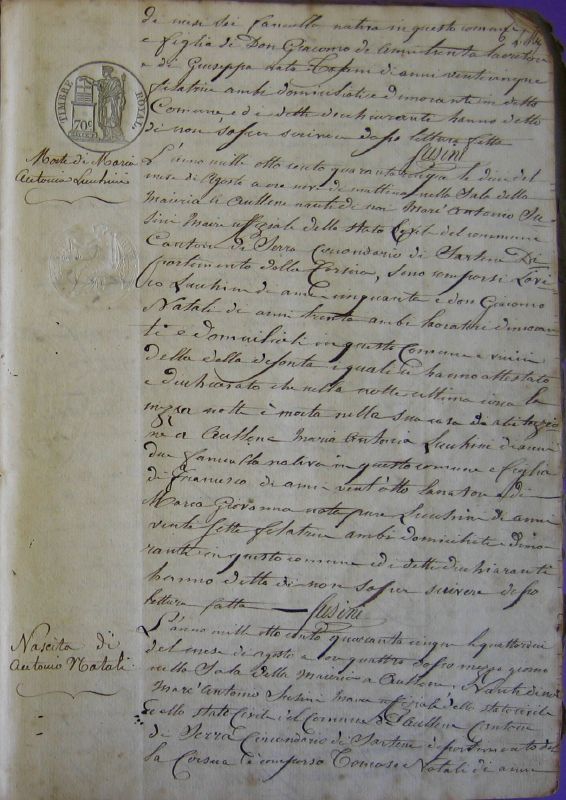 di mesi sei fanciulla nativa in questo comune
e figlia di Don Giacomo di anni trenta lavoratore
e di Giuseppa nata di anni venticinque
filatrice ambi domiciliati e dimoranti in detto
Comune, ed i detti dichiaranti hanno detto
di non saper scrivere dopo lettura fatta
Susini
TIMBRE ROYAL
70c
Morte di Maria
Antonia Lucchini
L'anno mille otto cento quaranta cinque li dieci del
mese di Agosto a ore nove di mattina nella Sala della
Maieria di Aullene nante di noi Marc'Antonio Su-
sini Maire uffiziale dello stato Civile del comune
Cantone di Serra Circondario di Sartene Di-
partimento della Corsica, sono comparsi
Lucchini di anni cinquanta e don Giacomo
Natali di anni trenta ambi lavoratori dimoran-
ti e domiciliati in questo Comune e vicini
della detta defonta i quali ci hanno attestato
e dichiarato che nella notte ultima circa la
mezza notte è morta nella sua casa da abitazio-
ne a Aullene Maria Antonia Lucchini di anni
due fanciulla nativa in questo comune e figlia
di Francesco di anni vent'otto e di
Maria Giovanna nata pure Lucchini di anni
venti sette filatrice ambi domiciliati e dimo-
ranti in questo comune ed i detti dichiaranti
hanno detto di non saper scrivere dopo
lettura fatta Susini
Nascita di
Antonio Natali
L'anno mille otto cento quaranta cinque li quattordici
del mese di Agosto a ore quattro dopo mezzo giorno
nella Sala della Maieria a Aullene, Nante di noi
Marc'Antonio Susini Maire uffiziale dello stato civile
dello stato Civile del Comune d'Aullene Cantone
di Serra Circondario di Sartene dipartimento del
la Corsica è comparso Tomaso Natali di anni